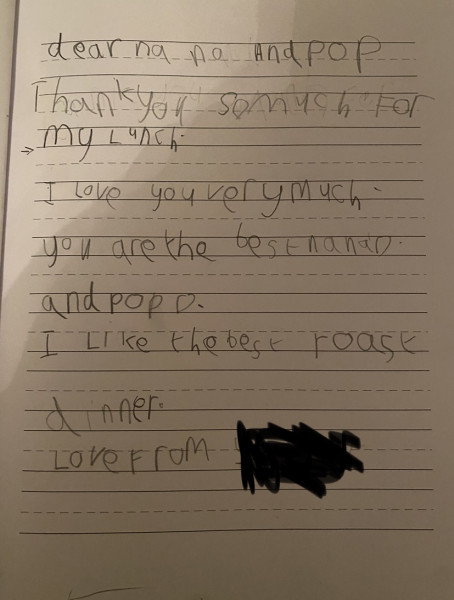 dear na no And pop
Thankyou so much for
my Lunch.
I love you very much.
you are the best nanao.
and pop o.
I Like the best roast
dinner.
Love From